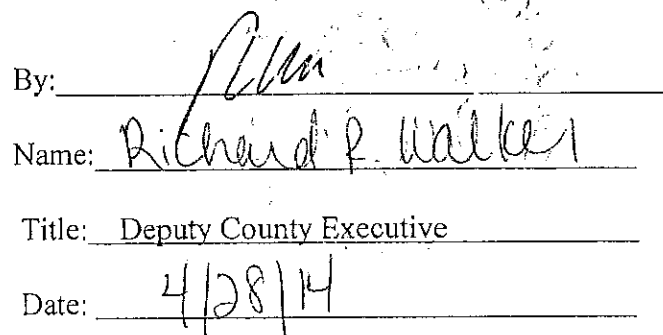 By:
Name: Richard R. Walker
Title: Deputy County Executive
Date: 4/28/14